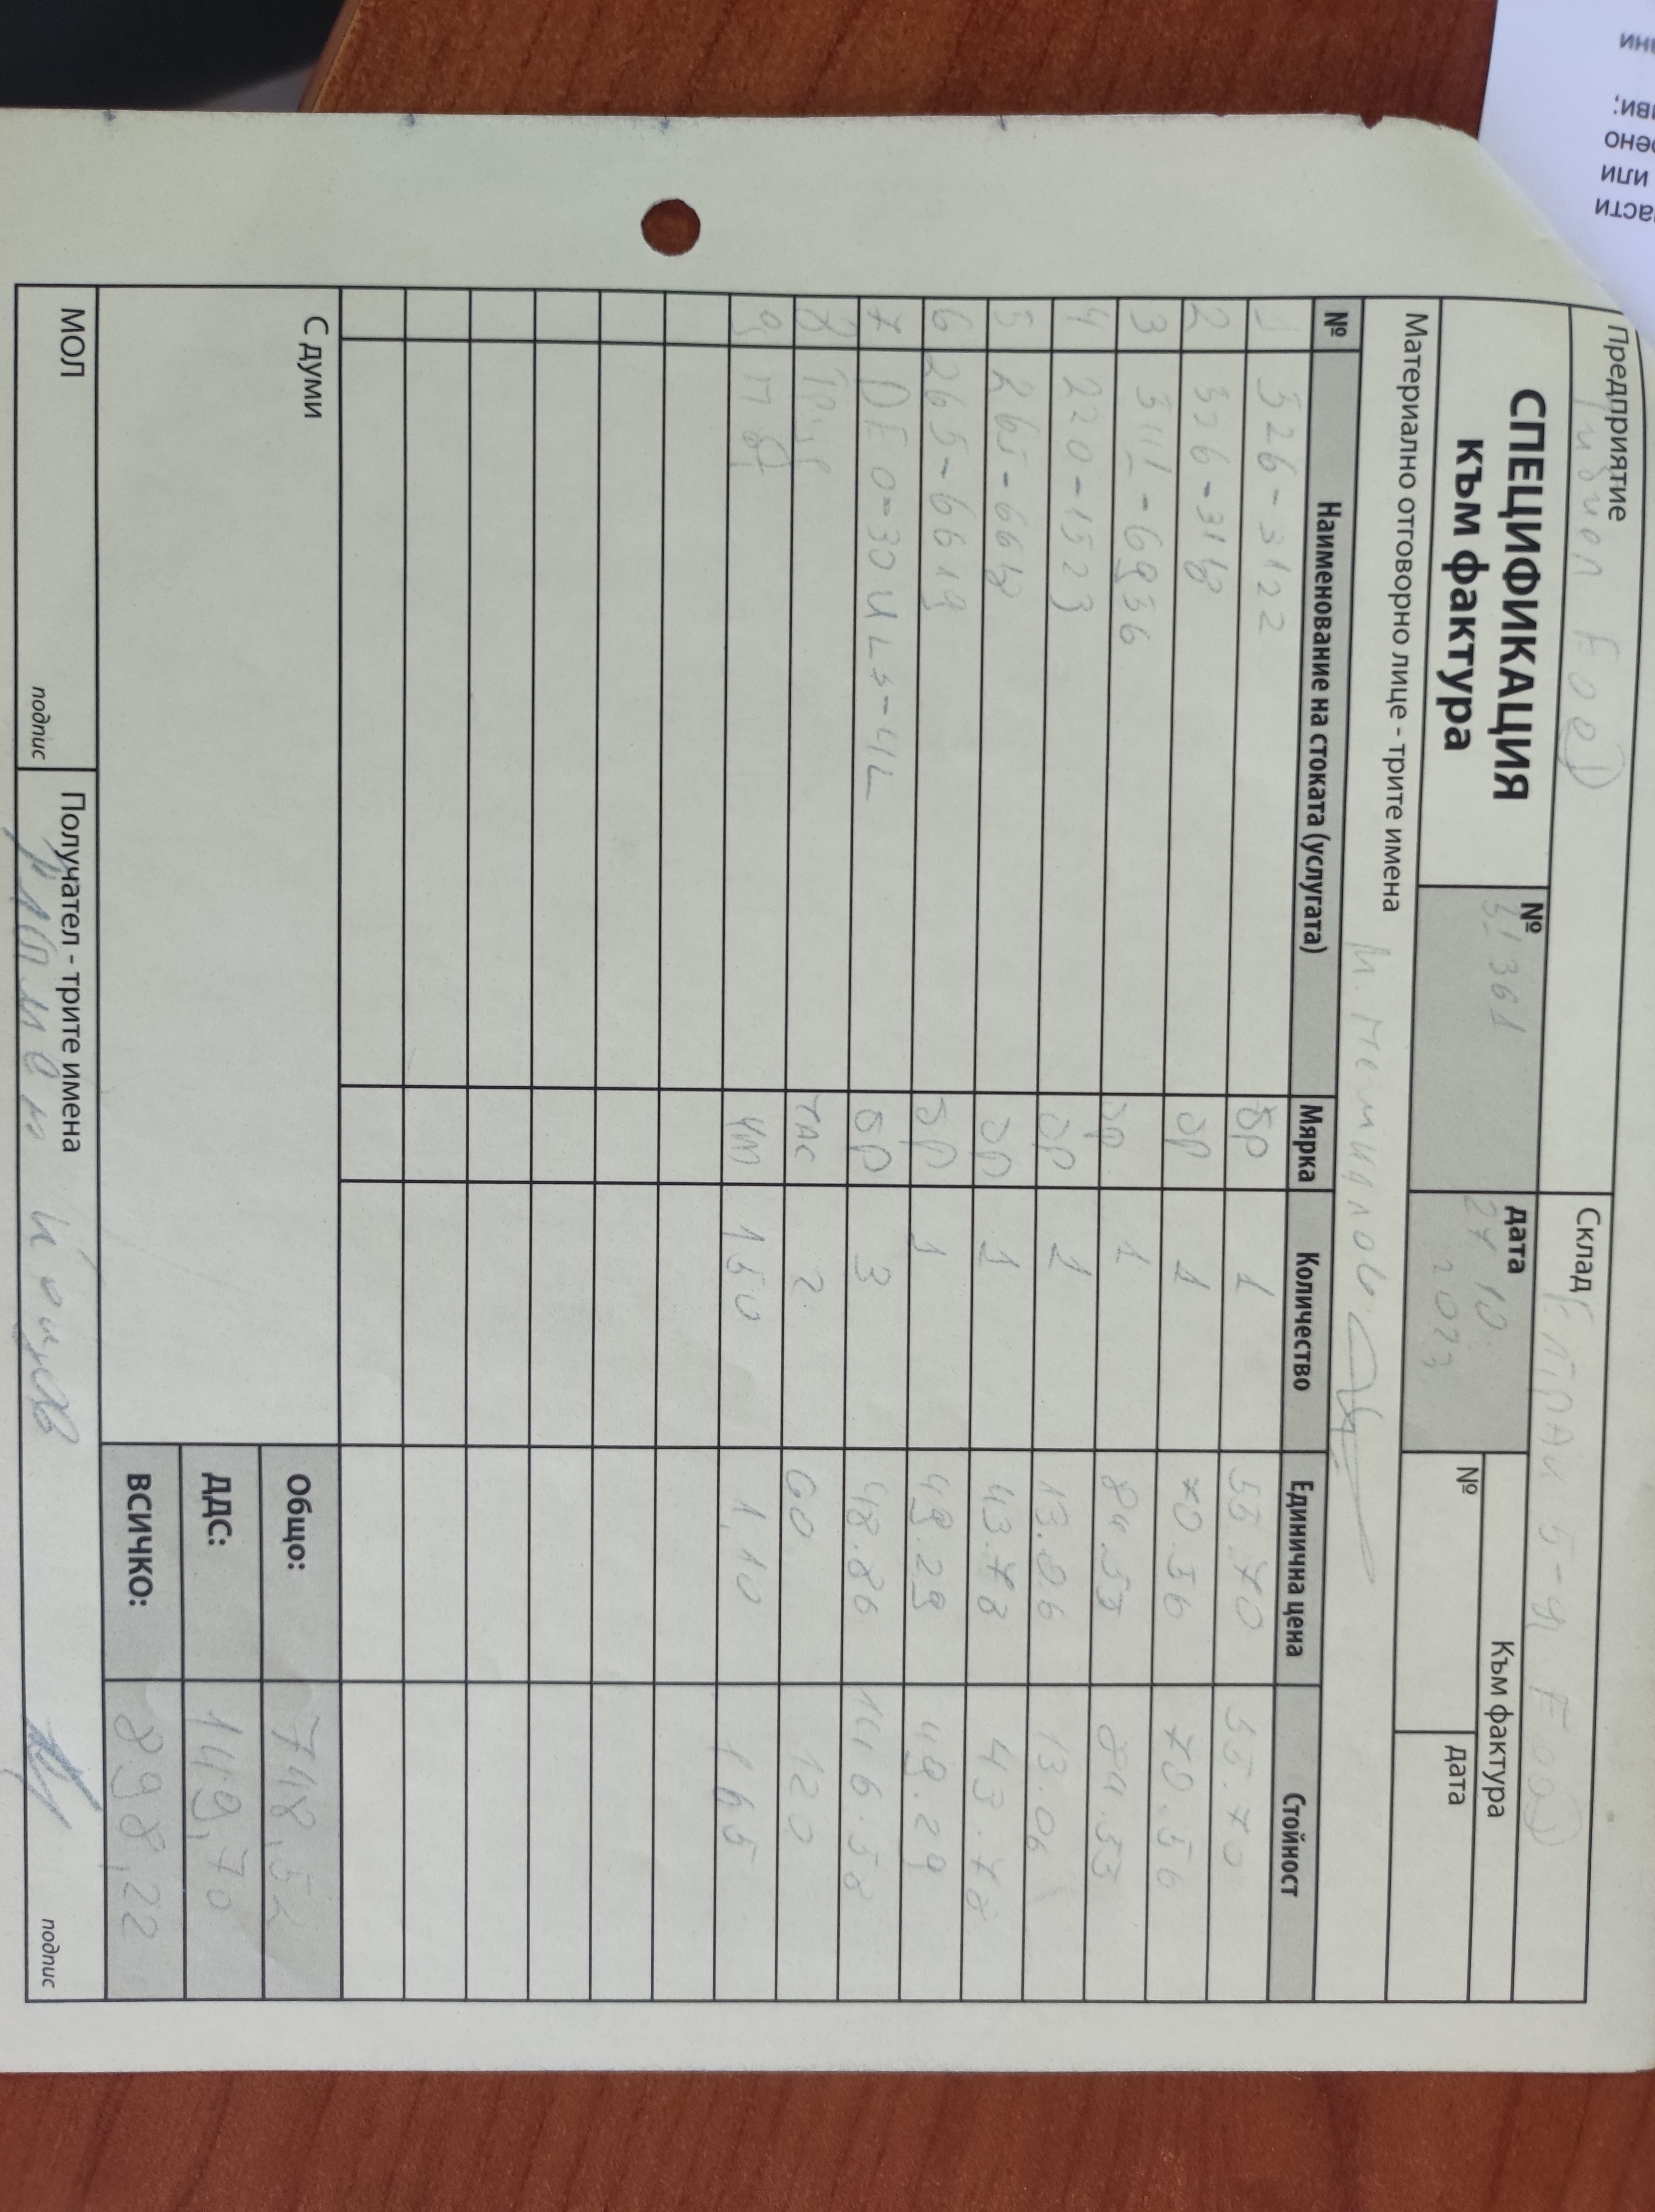 асти
или
рено
ви;
ни
Предприятие
ЕооД
Склад
5-Я ЕооД
СПЕЦИФИКАЦИЯ
към фактура
№
31361
дата
27.10.
2023
Към фактура
№
дата
Материално отговорно лице - трите имена
М.
№ Наименование на стоката (услугата) Мярка Количество Единична цена Стойност
1 326-3122 бр 1 55.70 55.70
2 326-3118 бр 1 70.56 70.56
3 3111-6936 бр 1 84.55 84.55
4 220-1523 бр 1 13.06 13.06
5 265-6618 бр 1 43.78 43.78
6 265-6619 бр 1 49.29 49.29
7 DEO-30ULS-4L бр 3 48.86 146.58
8 Труд час 2 60 120
9 Път км 150 1,10 165
С думи
Общо: 748,52
ДДС: 149,70
ВСИЧКО: 898,22
МОЛ
подпис
Получател - трите имена
Пламен
подпис